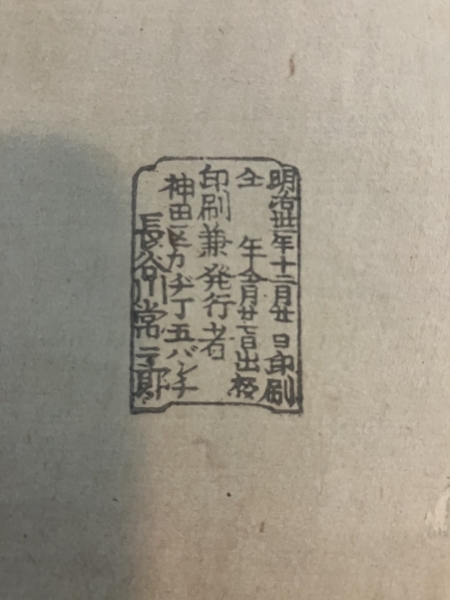 明治丗年十二月廿 日印刷
仝 年仝月廿 日出板
印刷兼発行者
神田区カヂ丁五バンチ
長谷川常二郎